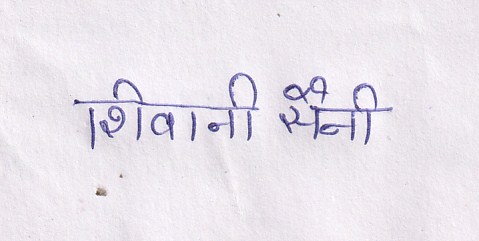 शिवानी सैनी